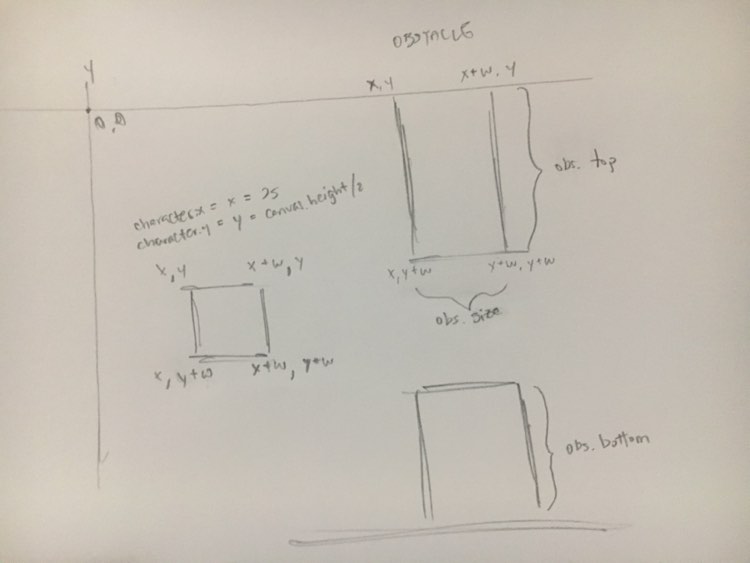 OBSTACLE
y
x, y
x+w, y
0,0
obs. top
character.x = x = 25
character.y = y = canvas.height/2
x, y
x+w, y
x, y+w
y+w, y+w
obs. size
x, y+w
x+w, y+w
obs. bottom